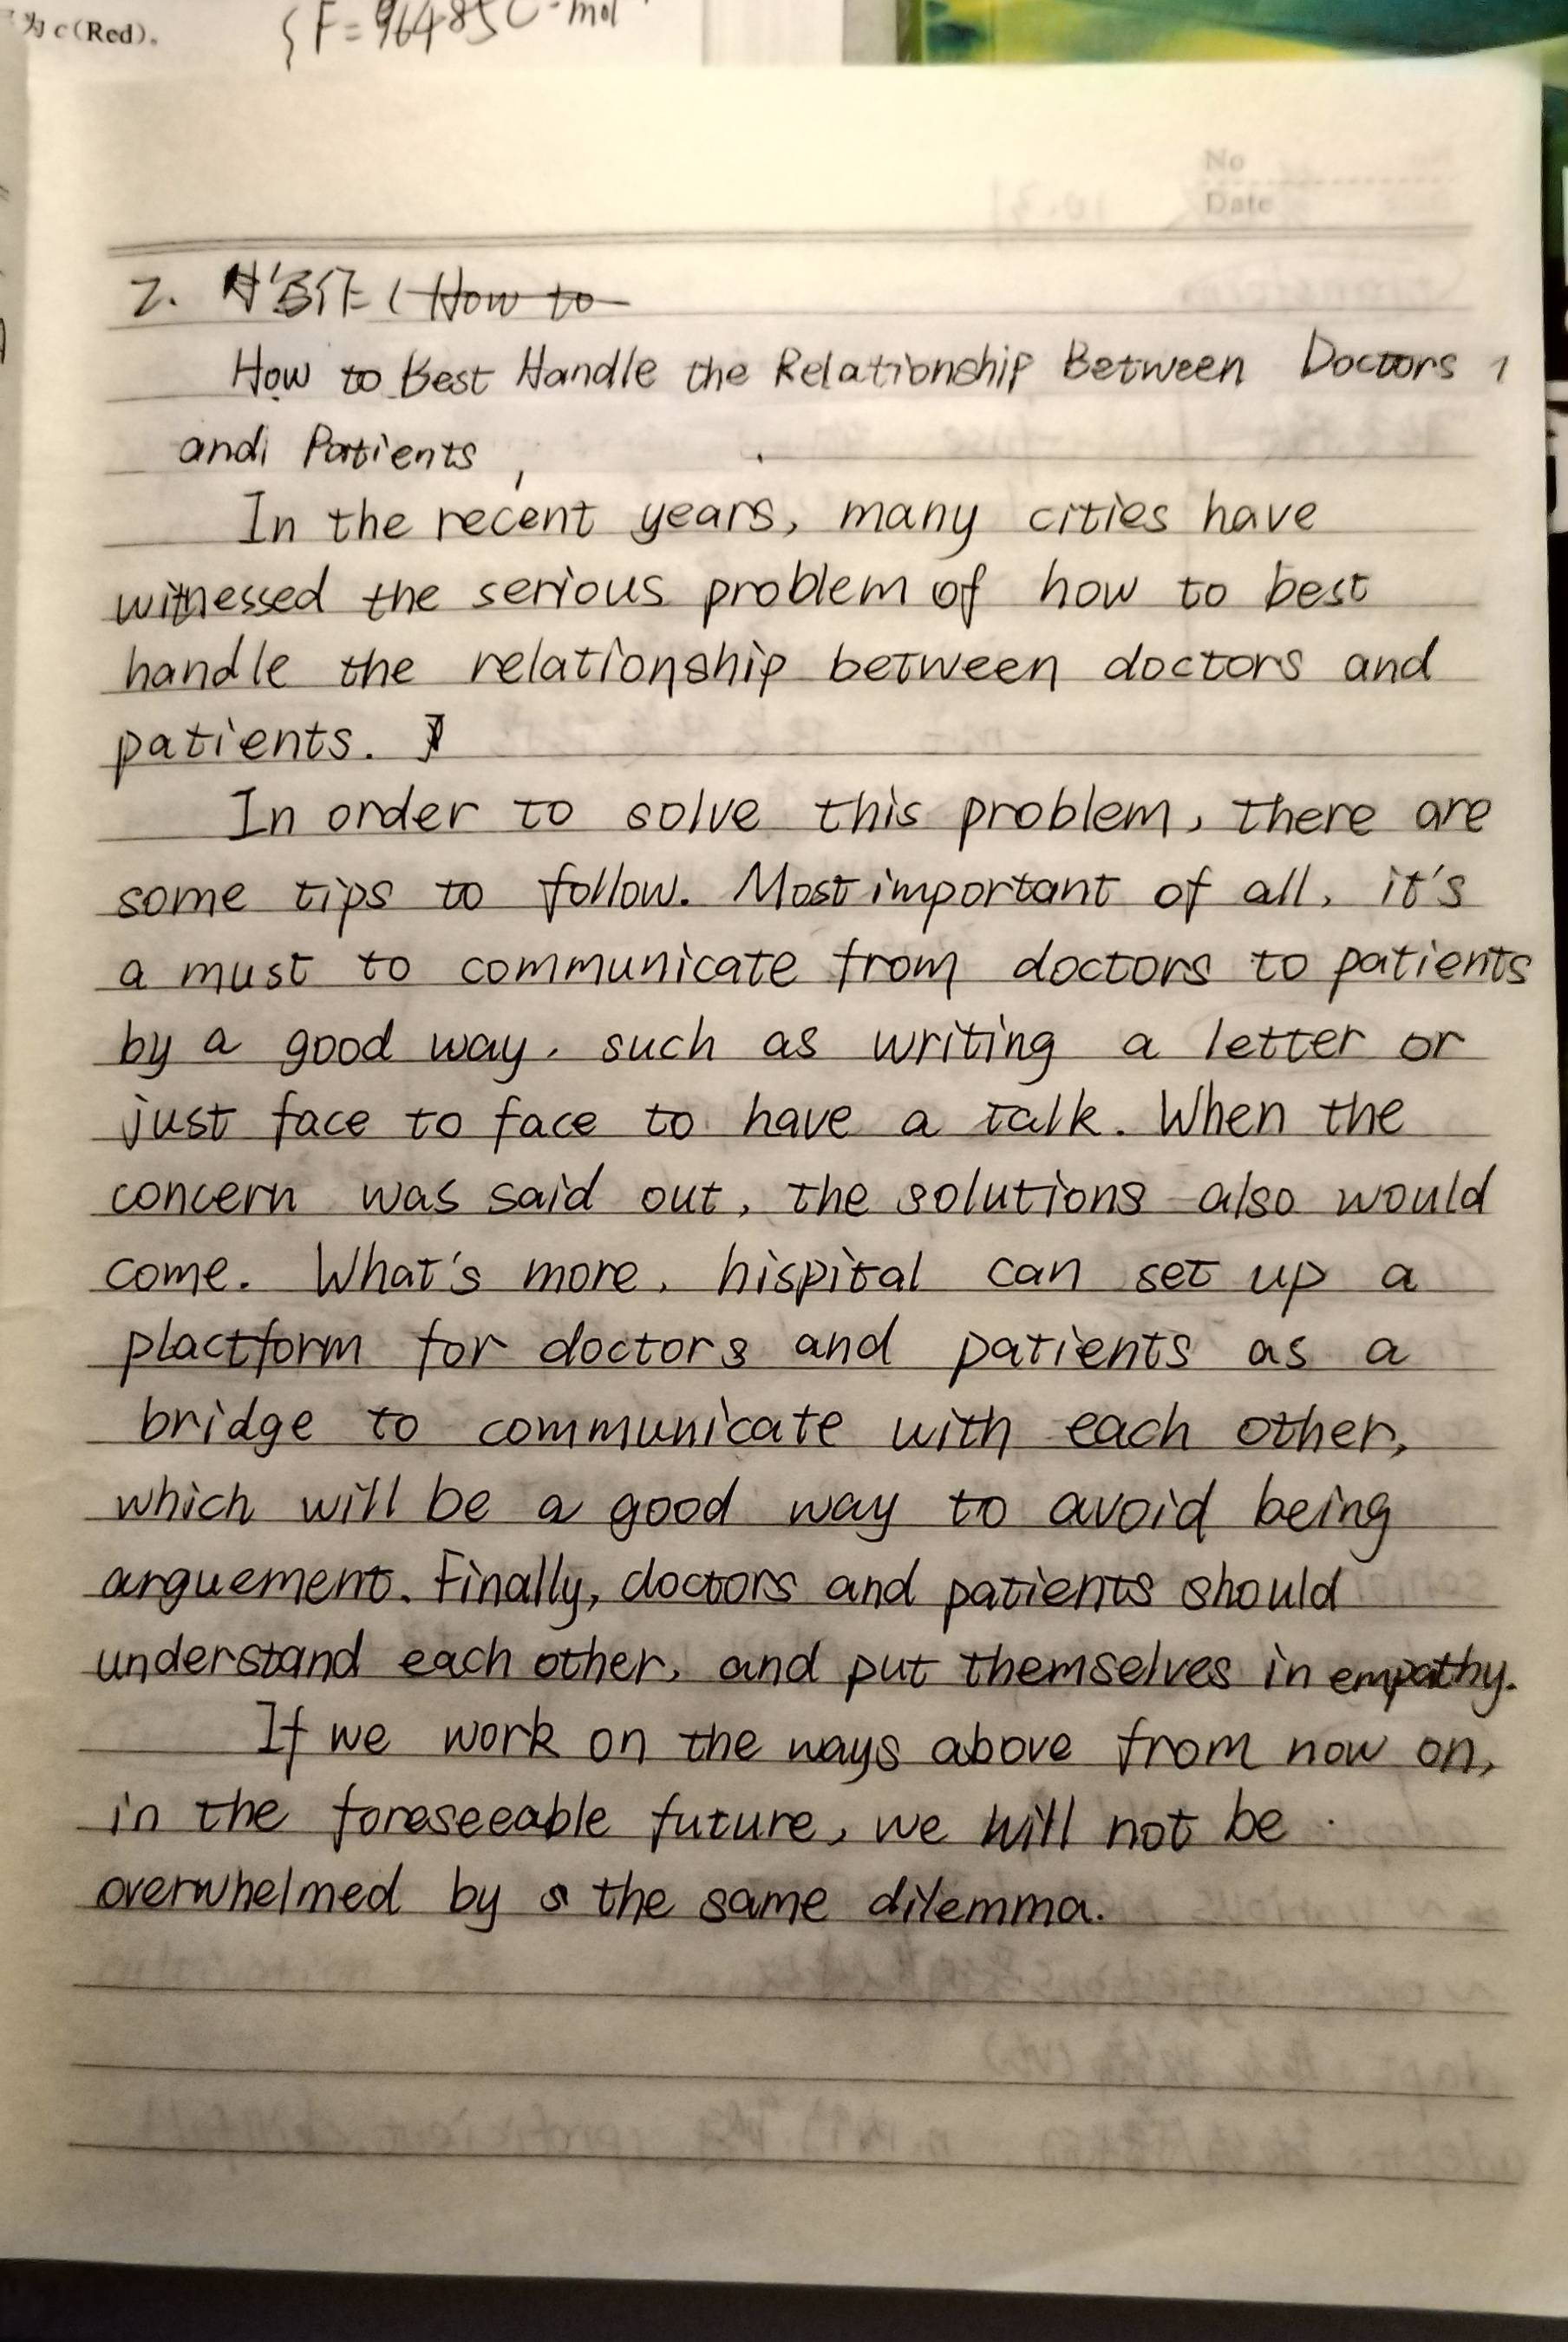 为 c(Red)。
F=96485C·mol
No
Date
2. 作(How to
How to Best Handle the Relationship Between Doctors
and Patients
In the recent years, many cities have
witnessed the serious problem of how to best
handle the relationship between doctors and
patients.
In order to solve this problem, there are
some tips to follow. Most important of all, it's
a must to communicate from doctors to patients
by a good way, such as writing a letter or
just face to face to have a talk. When the
concern was said out, the solutions also would
come. What's more, hispital can set up a
plactform for doctors and patients as a
bridge to communicate with each other,
which will be a good way to avoid being
arguement. Finally, doctors and patients should
understand each other, and put themselves in empathy.
If we work on the ways above from now on,
in the foreseeable future, we will not be
overwhelmed by s the same dilemma.